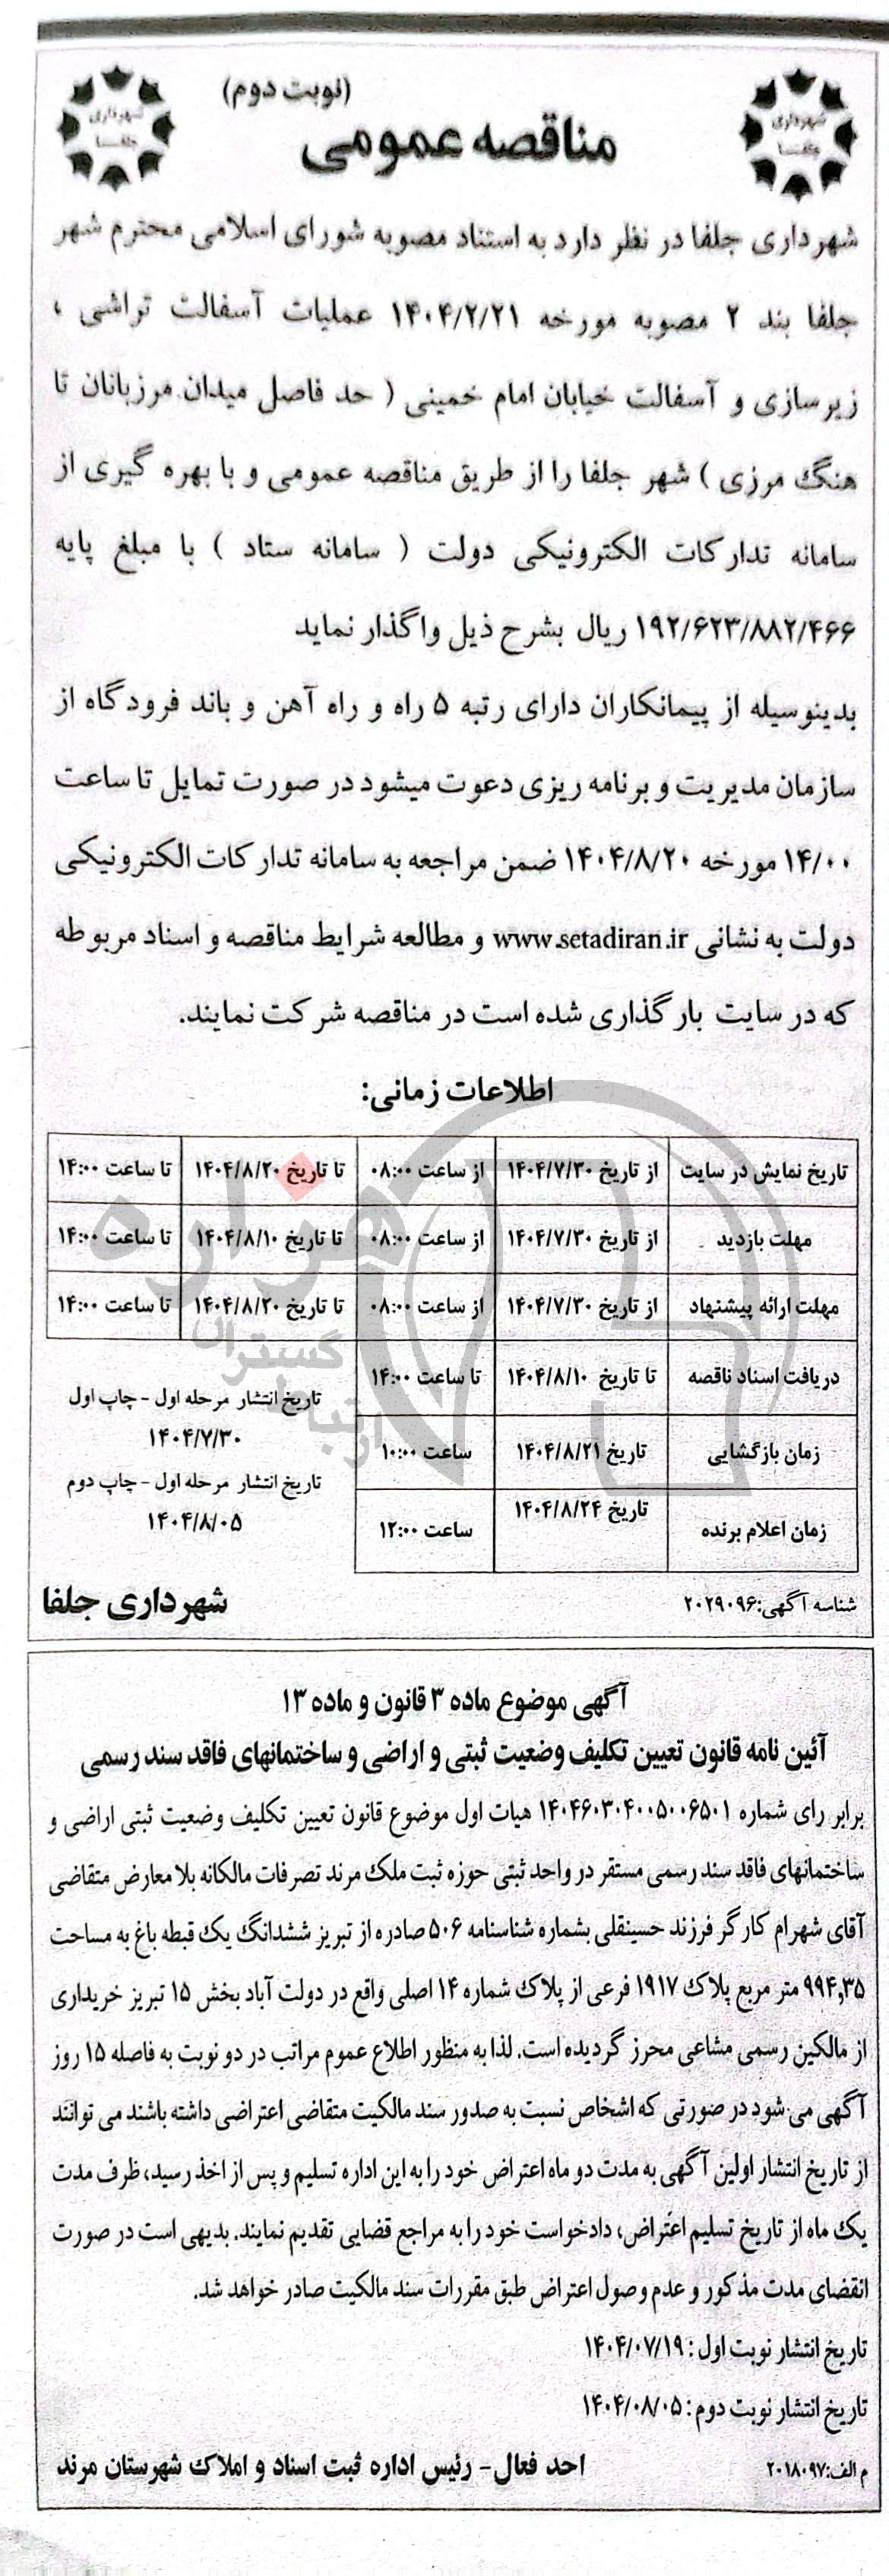 (نوبت دوم)
مناقصه عمومی
شهرداری جلفا
شهرداری جلفا
شهرداری جلفا در نظر دارد به استناد مصوبه شورای اسلامی محترم شهر
جلفا بند ۲ مصوبه مورخه ۱۴۰۴/۲/۲۱ عملیات آسفالت تراشی ،
زیرسازی و آسفالت خیابان امام خمینی ( حد فاصل میدان مرزبانان تا
هنگ مرزی ) شهر جلفا را از طریق مناقصه عمومی و با بهره گیری از
سامانه تدارکات الکترونیکی دولت ( سامانه ستاد ) با مبلغ پایه
۱۹۲/۶۲۳/۸۸۲/۴۶۶ ریال بشرح ذیل واگذار نماید
بدینوسیله از پیمانکاران دارای رتبه ۵ راه و راه آهن و باند فرودگاه از
سازمان مدیریت و برنامه ریزی دعوت میشود در صورت تمایل تا ساعت
۱۴/۰۰ مورخه ۱۴۰۴/۸/۲۰ ضمن مراجعه به سامانه تدارکات الکترونیکی
دولت به نشانی www.setadiran.ir و مطالعه شرایط مناقصه و اسناد مربوطه
که در سایت بارگذاری شده است در مناقصه شرکت نمایند.
اطلاعات زمانی:
تاریخ نمایش در سایت از تاریخ ۱۴۰۴/۷/۳۰ از ساعت ۰۸:۰۰ تا تاریخ ۱۴۰۴/۸/۲۰ تا ساعت ۱۴:۰۰
مهلت بازدید از تاریخ ۱۴۰۴/۷/۳۰ از ساعت ۰۸:۰۰ تا تاریخ ۱۴۰۴/۸/۱۰ تا ساعت ۱۴:۰۰
مهلت ارائه پیشنهاد از تاریخ ۱۴۰۴/۷/۳۰ از ساعت ۰۸:۰۰ تا تاریخ ۱۴۰۴/۸/۲۰ تا ساعت ۱۴:۰۰
دریافت اسناد ناقصه تا تاریخ ۱۴۰۴/۸/۱۰ تا ساعت ۱۴:۰۰
زمان بازگشایی تاریخ ۱۴۰۴/۸/۲۱ ساعت ۱۰:۰۰
زمان اعلام برنده تاریخ ۱۴۰۴/۸/۲۴ ساعت ۱۲:۰۰
تاریخ انتشار مرحله اول - چاپ اول
۱۴۰۴/۷/۳۰
تاریخ انتشار مرحله اول - چاپ دوم
۱۴۰۴/۸/۰۵
شناسه آگهی:۲۰۲۹۰۹۶
شهرداری جلفا
آگهی موضوع ماده ۳ قانون و ماده ۱۳
آئین نامه قانون تعیین تکلیف وضعیت ثبتی و اراضی و ساختمانهای فاقد سند رسمی
برابر رای شماره ۱۴۰۴۶۰۳۰۴۰۰۵۰۰۶۵۰۱ هیات اول موضوع قانون تعیین تکلیف وضعیت ثبتی اراضی و
ساختمانهای فاقد سند رسمی مستقر در واحد ثبتی حوزه ثبت ملک مرند تصرفات مالکانه بلامعارض متقاضی
آقای شهرام کارگر فرزند حسینقلی بشماره شناسنامه ۵۰۶ صادره از تبریز ششدانگ یک قبطه باغ به مساحت
۹۹۴,۳۵ متر مربع پلاک ۱۹۱۷ فرعی از پلاک شماره ۱۴ اصلی واقع در دولت آباد بخش ۱۵ تبریز خریداری
از مالکین رسمی مشاعی محرز گردیده است. لذا به منظور اطلاع عموم مراتب در دو نوبت به فاصله ۱۵ روز
آگهی می شود در صورتی که اشخاص نسبت به صدور سند مالکیت متقاضی اعتراضی داشته باشند می توانند
از تاریخ انتشار اولین آگهی به مدت دو ماه اعتراض خود را به این اداره تسلیم و پس از اخذ رسید، ظرف مدت
یک ماه از تاریخ تسلیم اعتراض، دادخواست خود را به مراجع قضایی تقدیم نمایند. بدیهی است در صورت
انقضای مدت مذکور و عدم وصول اعتراض طبق مقررات سند مالکیت صادر خواهد شد.
تاریخ انتشار نوبت اول : ۱۴۰۴/۰۷/۱۹
تاریخ انتشار نوبت دوم: ۱۴۰۴/۰۸/۰۵
م الف:۲۰۱۸۰۹۷
احد فعال- رئیس اداره ثبت اسناد و املاک شهرستان مرند